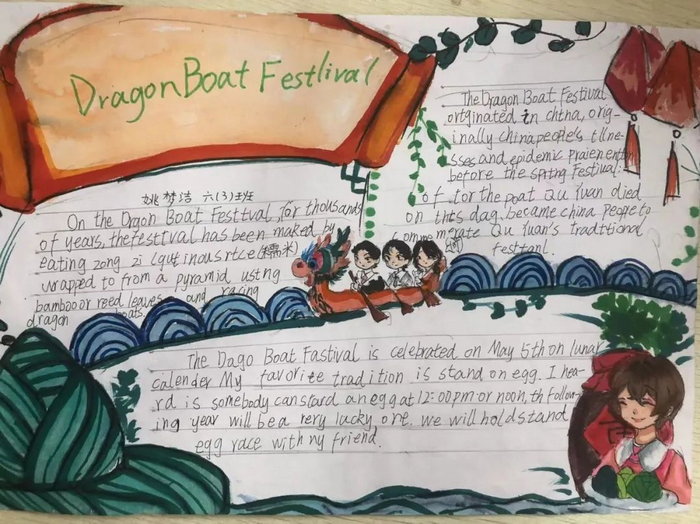 Dragon Boat Festlival
姚梦洁 六(3)班
On the Drgon Boat Festival, for thousands
of years, the festival has been maked by
eating zong zi (glutinous rice(糯米)
wrapped to from a pyramid using
bamboo or reed leaves and racing
dragon boats.
The Dragon Boat Festival
originated in china, orig-
inally china people's illne-
sses and epidemic
before the spring Festival.
of .for the poat Qu Yuan died
on this dag. became china peope to
commemerate Qu Yuan's traditional
The Dago Boat Fastival is celebrated on May 5th on lunar
calender My favorite tradition is stand on egg. I hea-
rd is somebody can stard an egg at 12:00 pm or noon, th follow-
ing year will be a rery lucky ore. we will hold stand
egg race with ny friend.